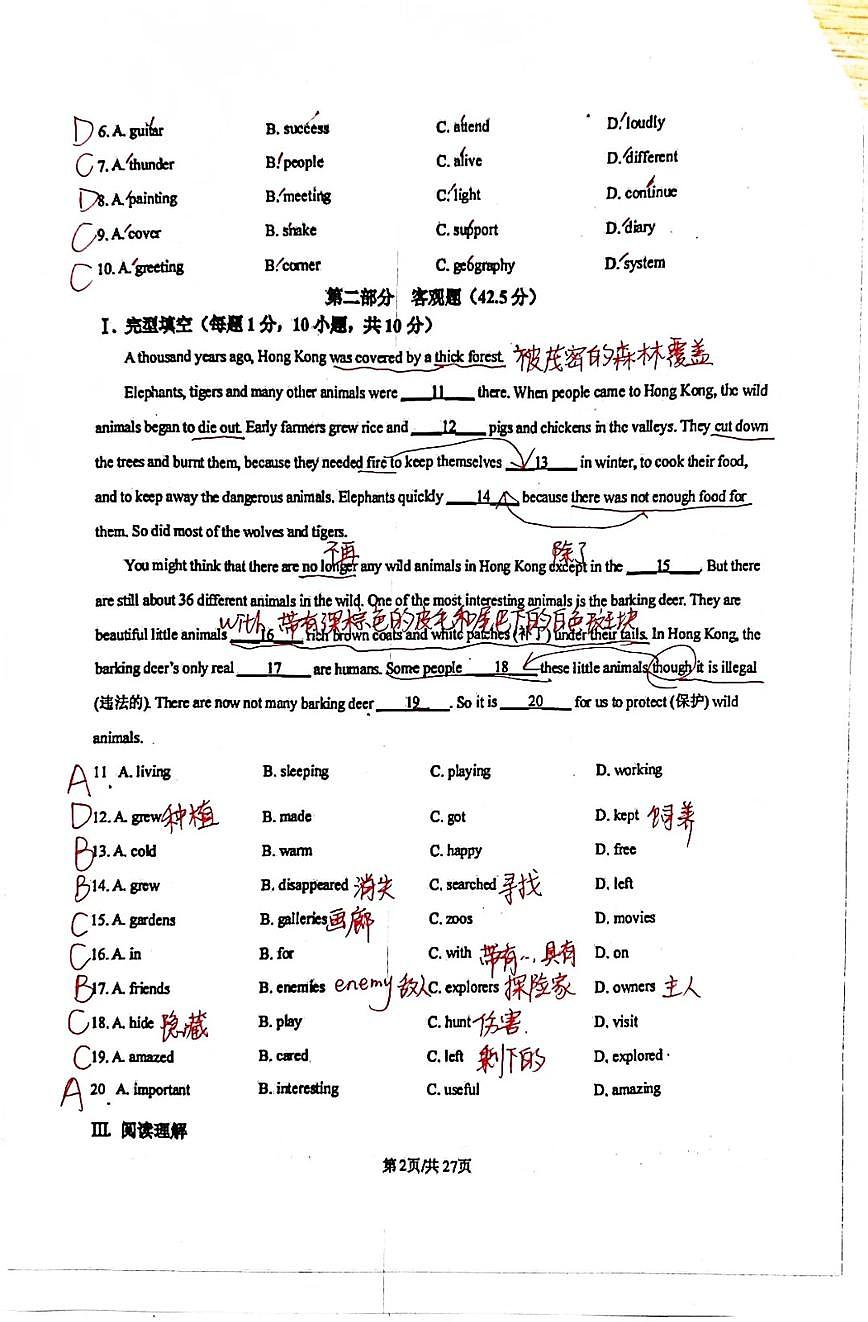 D 6. A. guitar B. success C. attend D. loudly
C 7. A. thunder B. people C. alive D. different
D 8. A. painting B. meeting C. light D. continue
C 9. A. cover B. shake C. support D. diary
C 10. A. greeting B. corner C. geography D. system
第二部分 客观题（42.5分）
I. 完型填空（每题1分，10小题，共10分）
A thousand years ago, Hong Kong was covered by a thick forest. 被茂密的森林覆盖
Elephants, tigers and many other animals were 11 there. When people came to Hong Kong, the wild
animals began to die out. Early farmers grew rice and 12 pigs and chickens in the valleys. They cut down
the trees and burnt them, because they needed fire to keep themselves 13 in winter, to cook their food,
and to keep away the dangerous animals. Elephants quickly 14 because there was not enough food for
them. So did most of the wolves and tigers.
不再 除了
You might think that there are no longer any wild animals in Hong Kong except in the 15 . But there
are still about 36 different animals in the wild. One of the most interesting animals is the barking deer. They are
with 带有深棕色的皮毛和尾巴下的白色斑块
beautiful little animals 16 rich brown coats and white patches (补丁) under their tails. In Hong Kong, the
barking deer's only real 17 are humans. Some people 18 these little animals though it is illegal
(违法的). There are now not many barking deer 19 . So it is 20 for us to protect (保护) wild
animals.
A 11 A. living B. sleeping C. playing D. working
D 12. A. grew 种植 B. made C. got D. kept 饲养
B 13. A. cold B. warm C. happy D. free
B 14. A. grew B. disappeared 消失 C. searched 寻找 D. left
C 15. A. gardens B. galleries 画廊 C. zoos D. movies
C 16. A. in B. for C. with 带有..,具有 D. on
B 17. A. friends B. enemies enemy 敌人 C. explorers 探险家 D. owners 主人
C 18. A. hide 隐藏 B. play C. hunt 伤害. D. visit
C 19. A. amazed B. cared C. left 剩下的 D. explored
A 20 A. important B. interesting C. useful D. amazing
III. 阅读理解
第2页/共27页